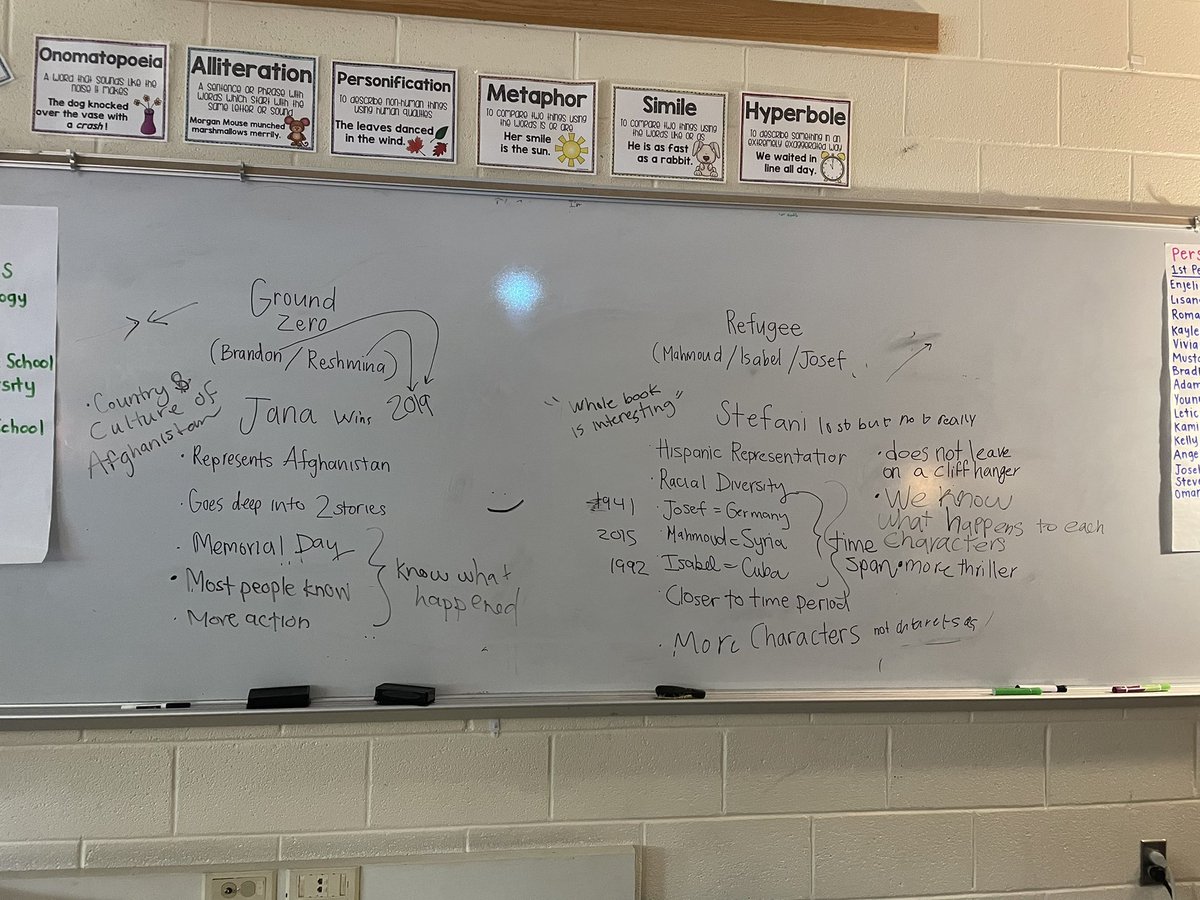 Onomatopoeia
A word that sounds like the
noise it makes
The dog knocked
over the vase with
a crash!
Alliteration
A sentence or phrase with
words which start with the
same letter or sound
Morgan Mouse munched
marshmallows merrily.
Personification
To describe non-human things
using human qualities
The leaves danced
in the wind.
Metaphor
To compare two things using
the words is or are
Her smile
is the sun.
Simile
To compare two things using
the words like or as
He is as fast
as a rabbit.
Hyperbole
To describe something in an
extremely exaggerated way
We waited in
line all day.
S
ogy
School
rsity
School
Ground
Zero
(Brandon/Reshmina)
• Country &
Culture of
Afghanistan
Jana wins 2019
• Represents Afghanistan
• Goes deep into 2 stories
• Memorial Day
• Most people know
• More action
know what
happened
Refugee
(Mahmoud/Isabel/Josef
"Whole book
is interesting"
Stefani lost but not really
• Hispanic Representation
• Racial Diversity
1941 • Josef = Germany
2015 • Mahmoud = Syria
1992 • Isabel = Cuba
• Closer to time period
• More Characters not
time
span
• does not leave
on a cliff hanger
• We know
what happens to each
characters
• more thriller
Pers
1st Pe
Enjeli
Lisan
Roma
Kayle
Vivia
Musta
Bradl
Adam
Youn
Letic
Kami
Kelly
Ange
Josep
Steve
Omar